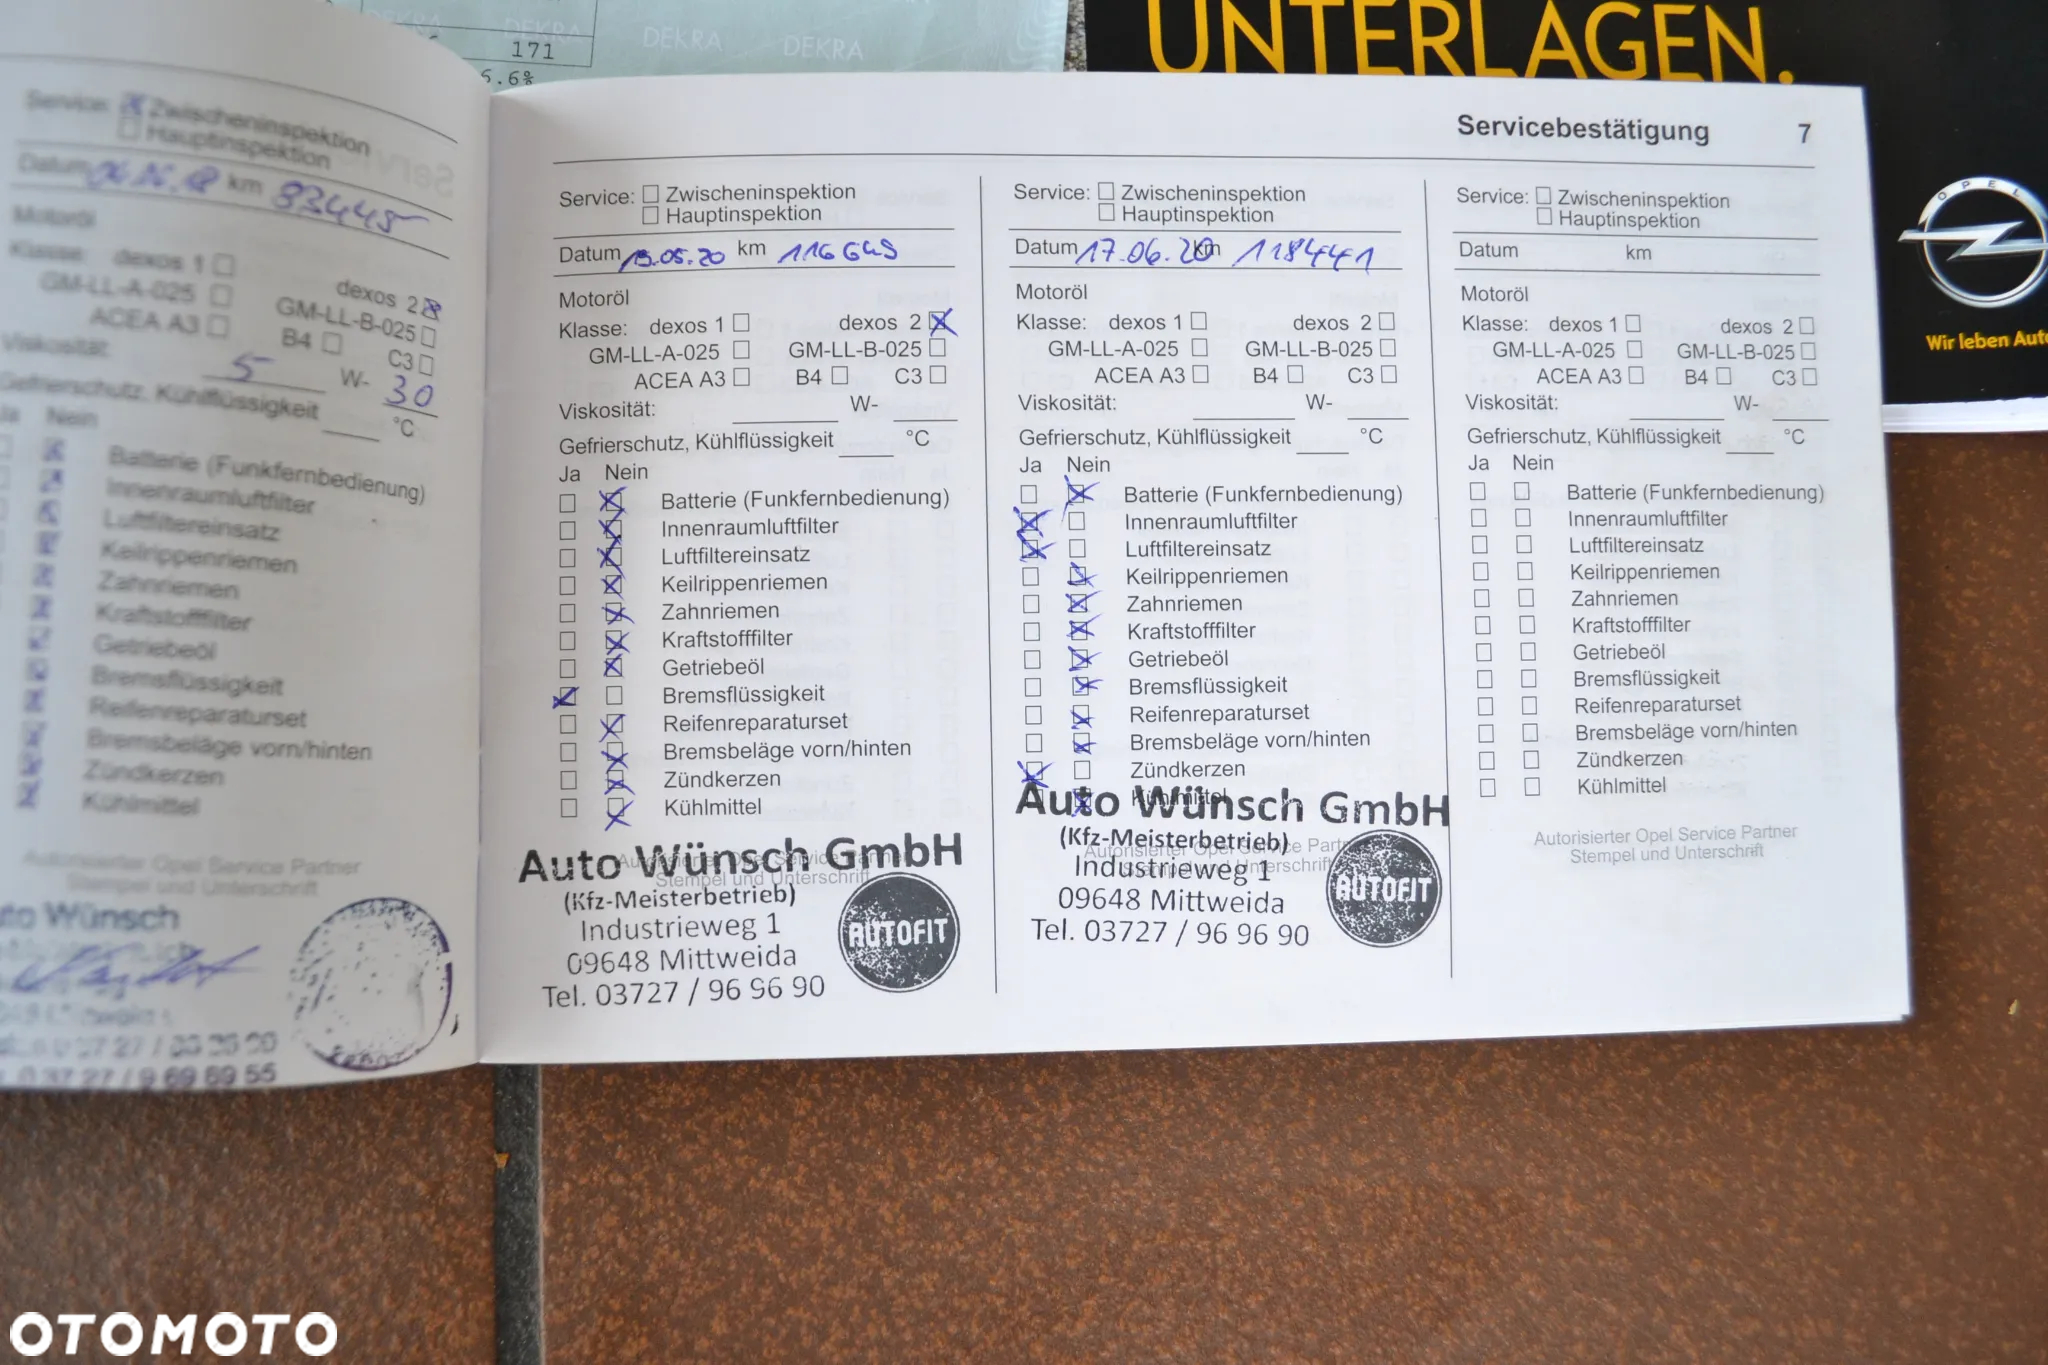 171
5.6%
DEKRA DEKRA DEKRA
UNTERLAGEN.
OPEL
Wir leben Auto
Service: Zwischeninspektion
Hauptinspektion
Datum km 83445
Motoröl
Klasse: dexos 1 dexos 2
GM-LL-A-025 GM-LL-B-025
ACEA A3 B4 C3
Viskosität 5 W- 30
Gefrierschutz, Kühlflüssigkeit °C
Ja Nein
Batterie (Funkfernbedienung)
Innenraumluftfilter
Luftfiltereinsatz
Keilrippenriemen
Zahnriemen
Kraftstofffilter
Getriebeöl
Bremsflüssigkeit
Reifenreparaturset
Bremsbeläge vorn/hinten
Zündkerzen
Kühlmittel
Autorisierter Opel Service Partner
Stempel und Unterschrift
Wünsch
Servicebestätigung 7
Service: Zwischeninspektion
Hauptinspektion
Datum .05.20 km 116
Motoröl
Klasse: dexos 1 dexos 2
GM-LL-A-025 GM-LL-B-025
ACEA A3 B4 C3
Viskosität: W-
Gefrierschutz, Kühlflüssigkeit °C
Ja Nein
Batterie (Funkfernbedienung)
Innenraumluftfilter
Luftfiltereinsatz
Keilrippenriemen
Zahnriemen
Kraftstofffilter
Getriebeöl
Bremsflüssigkeit
Reifenreparaturset
Bremsbeläge vorn/hinten
Zündkerzen
Kühlmittel
Autorisierter Opel Service Partner
Stempel und Unterschrift
Auto Wünsch GmbH
(Kfz-Meisterbetrieb)
Industrieweg 1
09648 Mittweida
Tel. 03727 / 96 96 90
AUTOFIT
Service: Zwischeninspektion
Hauptinspektion
Datum 17.06.20 km 118441
Motoröl
Klasse: dexos 1 dexos 2
GM-LL-A-025 GM-LL-B-025
ACEA A3 B4 C3
Viskosität: W-
Gefrierschutz, Kühlflüssigkeit °C
Ja Nein
Batterie (Funkfernbedienung)
Innenraumluftfilter
Luftfiltereinsatz
Keilrippenriemen
Zahnriemen
Kraftstofffilter
Getriebeöl
Bremsflüssigkeit
Reifenreparaturset
Bremsbeläge vorn/hinten
Zündkerzen
Kühlmittel
Autorisierter Opel Service Partner
Stempel und Unterschrift
Auto Wünsch GmbH
(Kfz-Meisterbetrieb)
Industrieweg 1
09648 Mittweida
Tel. 03727 / 96 96 90
AUTOFIT
Service: Zwischeninspektion
Hauptinspektion
Datum km
Motoröl
Klasse: dexos 1 dexos 2
GM-LL-A-025 GM-LL-B-025
ACEA A3 B4 C3
Viskosität: W-
Gefrierschutz, Kühlflüssigkeit °C
Ja Nein
Batterie (Funkfernbedienung)
Innenraumluftfilter
Luftfiltereinsatz
Keilrippenriemen
Zahnriemen
Kraftstofffilter
Getriebeöl
Bremsflüssigkeit
Reifenreparaturset
Bremsbeläge vorn/hinten
Zündkerzen
Kühlmittel
Autorisierter Opel Service Partner
Stempel und Unterschrift
OTOMOTO